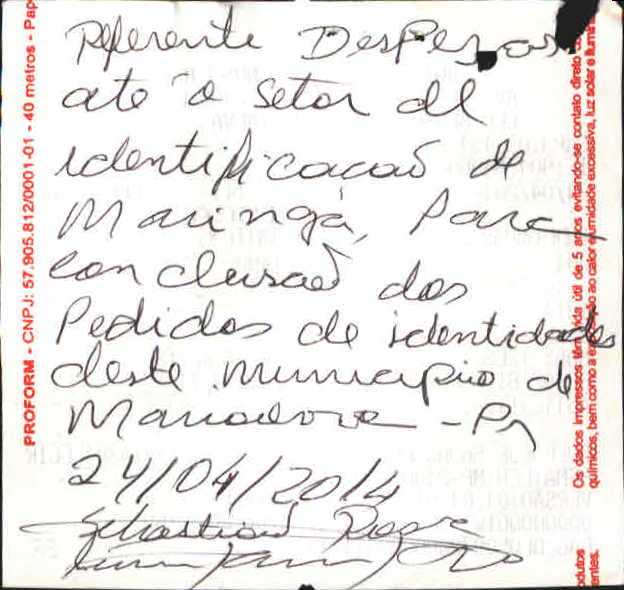 Referente Despesas
ate o setor de
identificacaõ de
Maringá, Para
conclusaõ dos
Pedidos de identidades
deste municipio de
Marialva - Pr
24/04/2014
Sebastiaõ
PROFORM - CNPJ: 57.905.812/0001-01 - 40 metros - Pap
Os dados impressos têm vida útil de 5 anos evitando-se contato direto
químicos, bem como a exposição ao calor e umidade excessiva, luz solar e ilumin
odutos
entes.